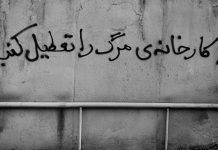 کارخانه‌ی مرگ را تعطیل کنید